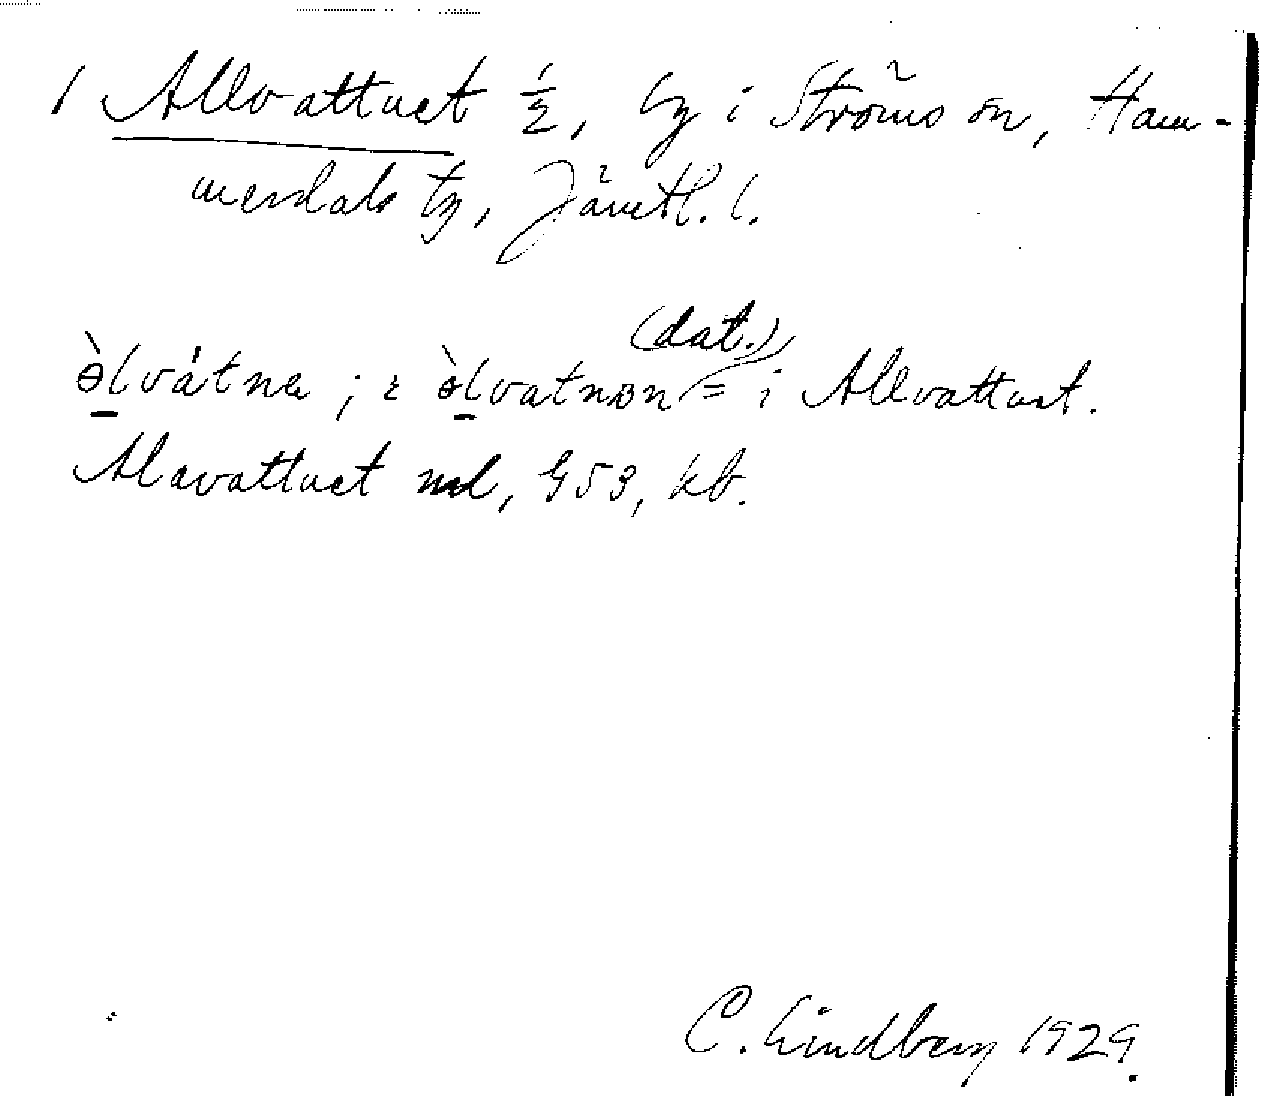 1 Allvattnet ½, by i Ströms sn, Ham-
merdals tg, Jämtl. l.
(dat.)
ə̀lvátnɐ ; ɪ ə̀lvatnɒn = i Allvattnet.
Alavattnet nd, G53, kb.
C. Lindberg 1929.